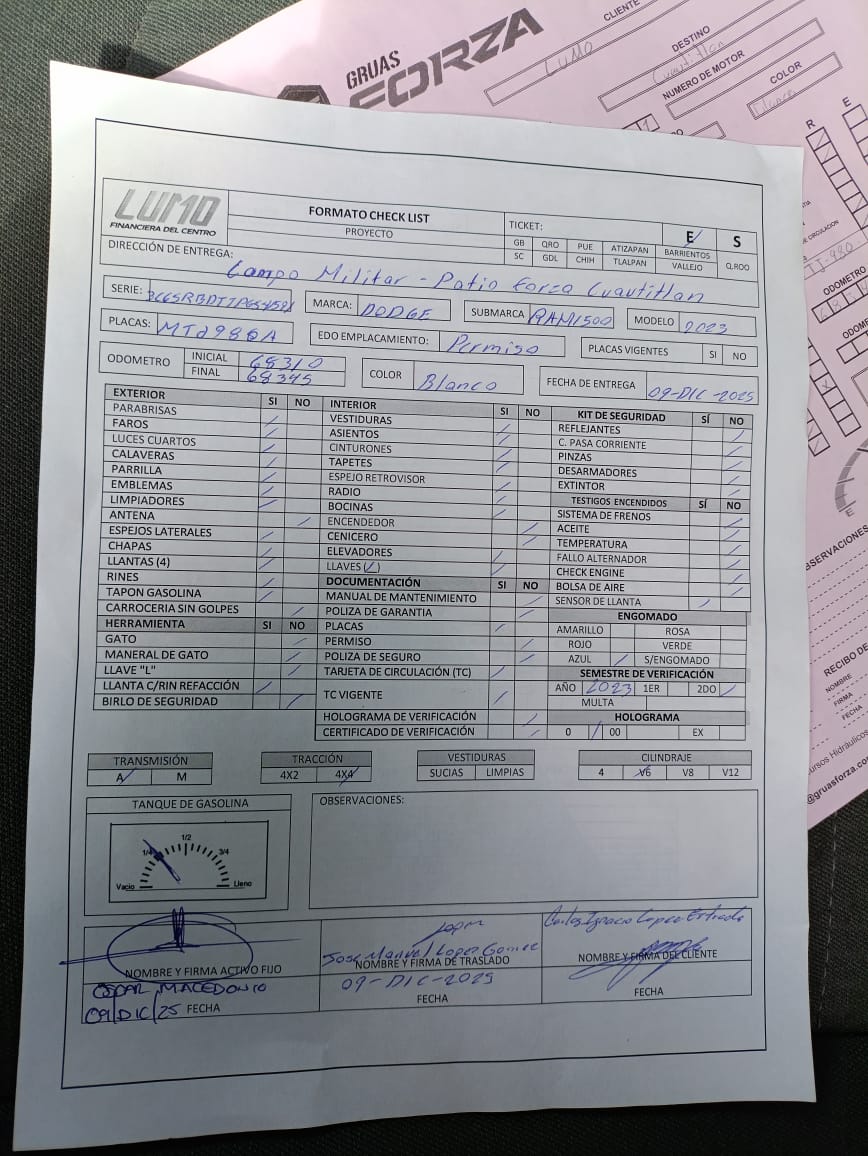 GRUAS
FORZA
CLIENTE
LUMO
DESTINO
Cuautitlan
NUMERO DE MOTOR
COLOR
Blanco
R
E
ODOMETRO
OBSERVACIONES
RECIBO DE
NOMBRE
FIRMA
FECHA
@gruasforza.co
LUMO
FINANCIERA DEL CENTRO
FORMATO CHECK LIST
PROYECTO
TICKET:
E S
GB QRO PUE ATIZAPAN BARRIENTOS Q.ROO
SC GDL CHIH TLALPAN VALLEJO
DIRECCIÓN DE ENTREGA:
Campo Militar - Patio Forza Cuautitlan
SERIE:
MARCA: DODGE
SUBMARCA RAM1500
MODELO 2023
PLACAS: MT2980A
EDO EMPLACAMIENTO: Permiso
PLACAS VIGENTES SI NO
ODOMETRO INICIAL 68310
FINAL 68345
COLOR Blanco
FECHA DE ENTREGA 09-DIC-2025
EXTERIOR SI NO
PARABRISAS
FAROS
LUCES CUARTOS
CALAVERAS
PARRILLA
EMBLEMAS
LIMPIADORES
ANTENA
ESPEJOS LATERALES
CHAPAS
LLANTAS (4)
RINES
TAPON GASOLINA
CARROCERIA SIN GOLPES
HERRAMIENTA SI NO
GATO
MANERAL DE GATO
LLAVE "L"
LLANTA C/RIN REFACCIÓN
BIRLO DE SEGURIDAD
INTERIOR SI NO
VESTIDURAS
ASIENTOS
CINTURONES
TAPETES
ESPEJO RETROVISOR
RADIO
BOCINAS
ENCENDEDOR
CENICERO
ELEVADORES
LLAVES (/)
DOCUMENTACIÓN SI NO
MANUAL DE MANTENIMIENTO
POLIZA DE GARANTIA
PLACAS
PERMISO
POLIZA DE SEGURO
TARJETA DE CIRCULACIÓN (TC)
TC VIGENTE
HOLOGRAMA DE VERIFICACIÓN
CERTIFICADO DE VERIFICACIÓN
KIT DE SEGURIDAD SÍ NO
REFLEJANTES
C. PASA CORRIENTE
PINZAS
DESARMADORES
EXTINTOR
TESTIGOS ENCENDIDOS SÍ NO
SISTEMA DE FRENOS
ACEITE
TEMPERATURA
FALLO ALTERNADOR
CHECK ENGINE
BOLSA DE AIRE
SENSOR DE LLANTA
ENGOMADO
AMARILLO ROSA
ROJO VERDE
AZUL S/ENGOMADO
SEMESTRE DE VERIFICACIÓN
AÑO 2023 1ER 2DO
MULTA
HOLOGRAMA
0 00 EX
TRANSMISIÓN
A M
TRACCIÓN
4X2 4X4
VESTIDURAS
SUCIAS LIMPIAS
CILINDRAJE
4 V6 V8 V12
TANQUE DE GASOLINA
1/4 1/2 3/4
Vacio Lleno
OBSERVACIONES:
NOMBRE Y FIRMA ACTIVO FIJO
OSCAR MACEDONIO
09/DIC/25 FECHA
Jose Manuel Lopez Gomez
NOMBRE Y FIRMA DE TRASLADO
09-DIC-2025
FECHA
Carlos Ignacio Lopez Estrada
NOMBRE Y FIRMA DEL CLIENTE
FECHA